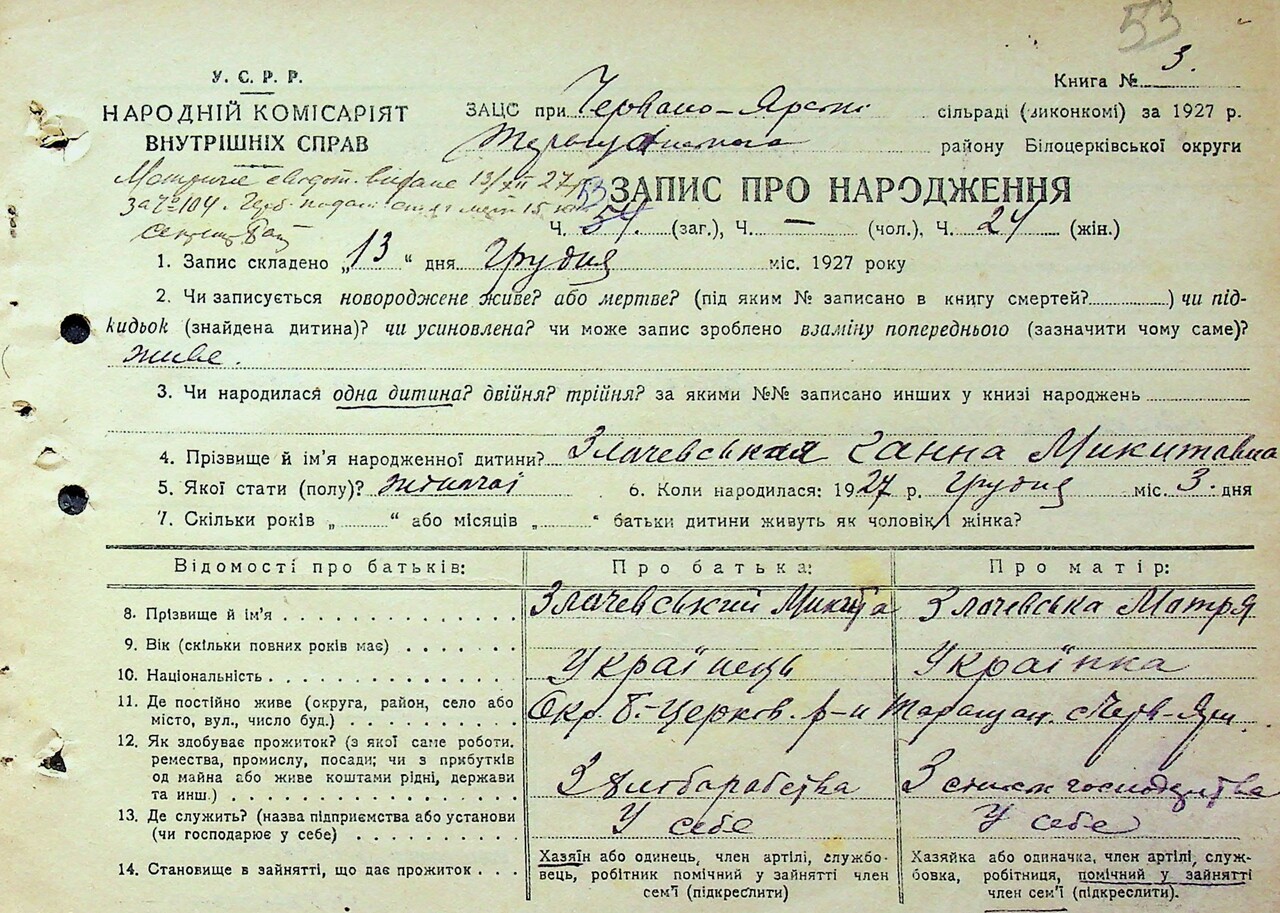 53
У. С. Р. Р.
НАРОДНІЙ КОМІСАРІЯТ
ВНУТРІШНІХ СПРАВ
Книга № 3.
ЗАЦС при Червоно-Ярській сільраді (виконкомі) за 1927 р.
району Білоцерківської округи
видане 13/XII 27 р.
за № 104.
ЗАПИС ПРО НАРОДЖЕННЯ
Ч. 53 54 (заг.), Ч. – (чол.), Ч. 24 (жін.)
1. Запис складено „13“ дня грудня міс. 1927 року
2. Чи записується новороджене живе? або мертве? (під яким № записано в книгу смертей?) чи під-
кидьок (знайдена дитина)? чи усиновлена? чи може запис зроблено взаміну попереднього (зазначити чому саме)?
живе.
3. Чи народилася одна дитина? двійня? трійня? за якими №№ записано инших у книзі народжень
4. Прізвище й ім’я народженної дитини? Злочевськая Ганна Микитовна
5. Якої стати (полу)? жіночої 6. Коли народилася: 1927 р. Грудня міс. 3. дня
7. Скільки років „ “ або місяців „ “ батьки дитини живуть як чоловік і жінка?
Відомості про батьків: Про батька: Про матір:
8. Прізвище й ім’я Злочевський Микита Злочевська Мотря
9. Вік (скільки повних років має)
10. Національність Українець Українка
11. Де постійно живе (округа, район, село або
місто, вул., число буд.) Окр. Б.-Церков. р-н Таращан. с Черв-Яри
12. Як здобуває прожиток? (з якої саме роботи.
ремества, промислу, посади; чи з прибутків
од майна або живе коштами рідні, держави
та инш.) З хліборобства З господарства
13. Де служить? (назва підприємства або установи
(чи господарює у себе) У себе У себе
14. Становище в зайнятті, що дає прожиток
Хазяїн або одинець, член артілі, службо-
вець, робітник помічний у зайнятті член
сем’ї (підкреслити)
Хазяйка або одиначка, член артілі, служ-
бовка, робітниця, помічний у зайнятті
член сем’ї (підкреслити).